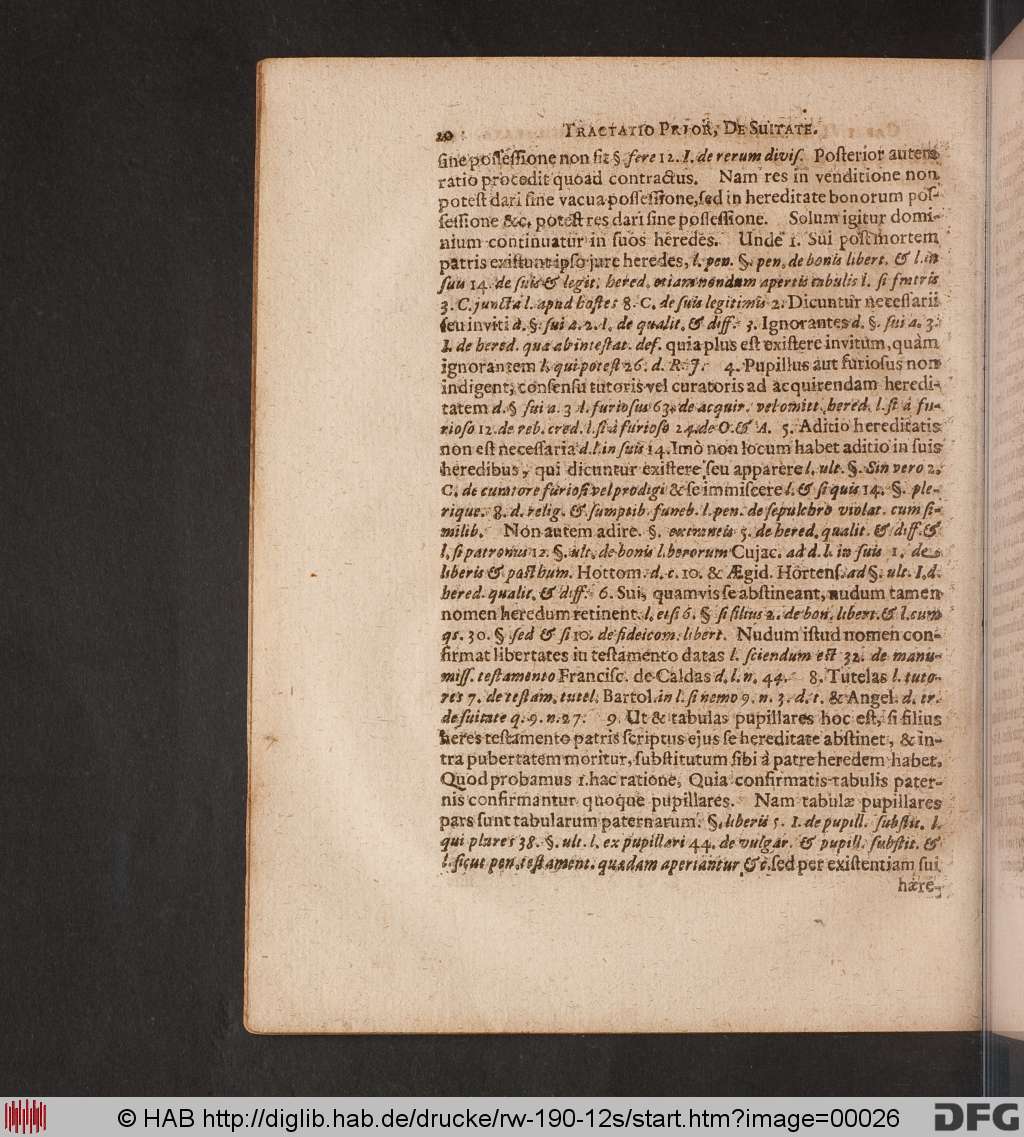 20 TRACTATIO PRIOR, DE SUITATE.
ſine poſſeſſione non fit §. fere 12. I. de rerum diviſ. Poſterior autem
ratio procedit quoad contractus. Nam res in venditione non
poteſt dari ſine vacua poſſeſſione, ſed in hereditate bonorum poſ-
ſeſſione &c. poteſt res dari ſine poſſeſſione. Solum igitur domi-
nium continuatur in ſuos heredes. Unde 1. Sui poſt mortem
patris exiſtunt ipſo jure heredes, l. pen. §. pen. de bonis libert. & l. in
ſuis 14. de ſuis & legit. hered. etiam nondum apertis tabulis l. ſi fratris
3. C. juncta l. apud hoſtes 8. C. de ſuis legitimis 2. Dicuntur neceſſarii
ſeu inviti d. §. ſui a. 2. I. de qualit. & diff. 3. Ignorantes d. §. ſui a. 3.
I. de hered. qua ab inteſtat. def. quia plus eſt exiſtere invitum, quàm
ignorantem l. qui poteſt 26. d. R. J. 4. Pupillus aut furioſus non
indigent, conſenſu tutoris vel curatoris ad acquirendam heredi-
tatem d. § ſui a. 3 l. furioſus 63. de acquir. vel omitt. hered. l. ſi à fu-
rioſo 12. de reb. cred. l. ſi à furioſo 24. de O. & A. 5. Aditio hereditatis
non eſt neceſſaria d. l. in ſuis 14. Imò non locum habet aditio in ſuis
heredibus, qui dicuntur exiſtere ſeu apparere l. ult. §. Sin vero 2.
C. de curatore furioſi vel prodigi & ſe immiſcere l. & ſi quis 14. §. ple-
rique. 8. d. relig. & ſumptib. funeb. l. pen. de ſepulchro violat. cum ſi-
milib. Non autem adire. §. extraneis 5. de hered. qualit. & diff. &
l. ſi patronus 12. §. ult. de bonis liberorum Cujac. ad d. l. in ſuis 1. de
liberis & poſthum. Hottom. d. c. 10. & Ægid. Hortenſ. ad §. ult. I. d.
hered. qualit. & diff. 6. Sui, quamvis ſe abſtineant, nudum tamen
nomen heredum retinent. l. etſi 6. § ſi filius 2. de bon. libert. & l. cum
qs. 30. § ſed & ſi 10. de fideicom. libert. Nudum iſtud nomen con-
firmat libertates in teſtamento datas l. ſciendum eſt 32. de manu-
miſſ. teſtamento Franciſc. de Caldas d. l. n. 44. 8. Tutelas l. tuto-
res 7. de teſtam. tutel. Bartol. in l. ſi nemo 9. n. 3. d. t. & Angel. d. tr.
de ſuitate q. 9. n. 27. 9. Ut & tabulas pupillares hoc eſt, ſi filius
heres teſtamento patris ſcriptus ejus ſe hereditate abſtinet, & in-
tra pubertatem moritur, ſubſtitutum ſibi à patre heredem habet.
Quod probamus 1. hac ratione, Quia confirmatis tabulis pater-
nis confirmantur quoque pupillares. Nam tabulæ pupillares
pars ſunt tabularum paternarum. §. liberis 5. I. de pupill. ſubſtit. l.
qui plures 38. §. ult. l. ex pupillari 44. de vulgar. & pupill. ſubſtit. &
l. ſicut pen. teſtament. quadam aperiantur & c. ſed per exiſtentiam ſui
hære-
© HAB http://diglib.hab.de/drucke/rw-190-12s/start.htm?image=00026
DFG